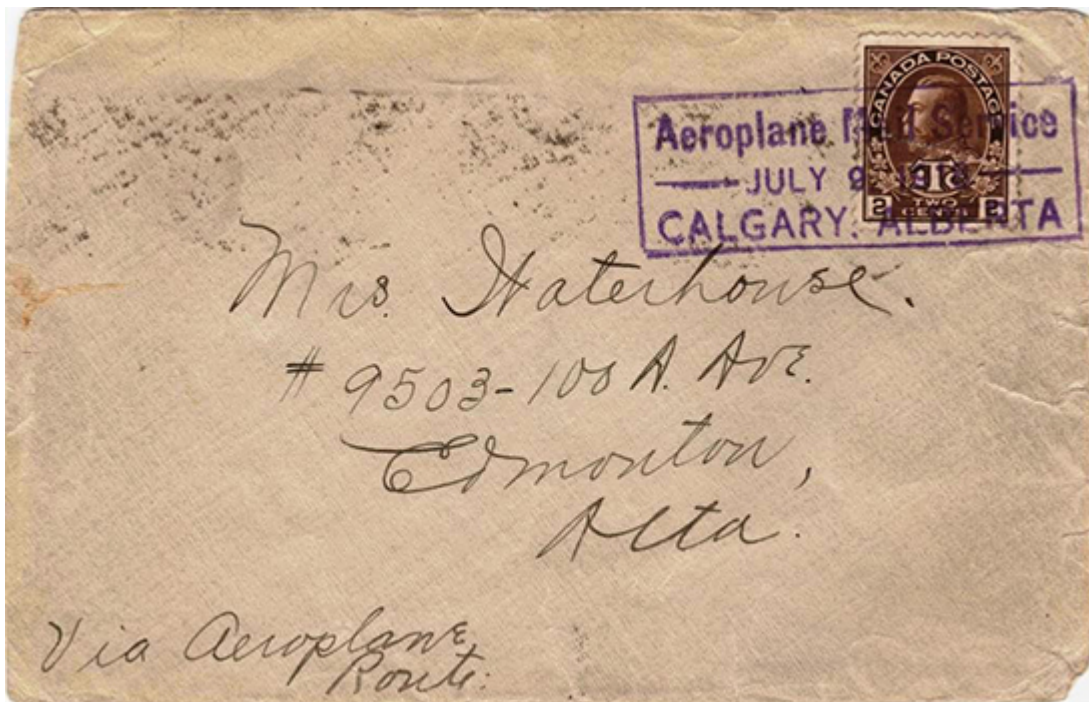 CANADA POSTAGE
2 TWO CENTS 2
Aeroplane Mail Service
JULY 9 1918
CALGARY, ALBERTA
Mrs. Waterhouse.
# 9503-100 A. Ave.
Edmonton,
Alta.
Via Aeroplane
Route.